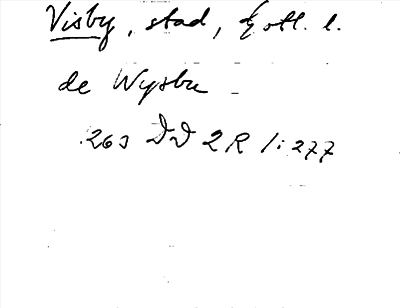 Visby, stad, Gotl. l.
de Wysbu
1263 DD 2R 1:277